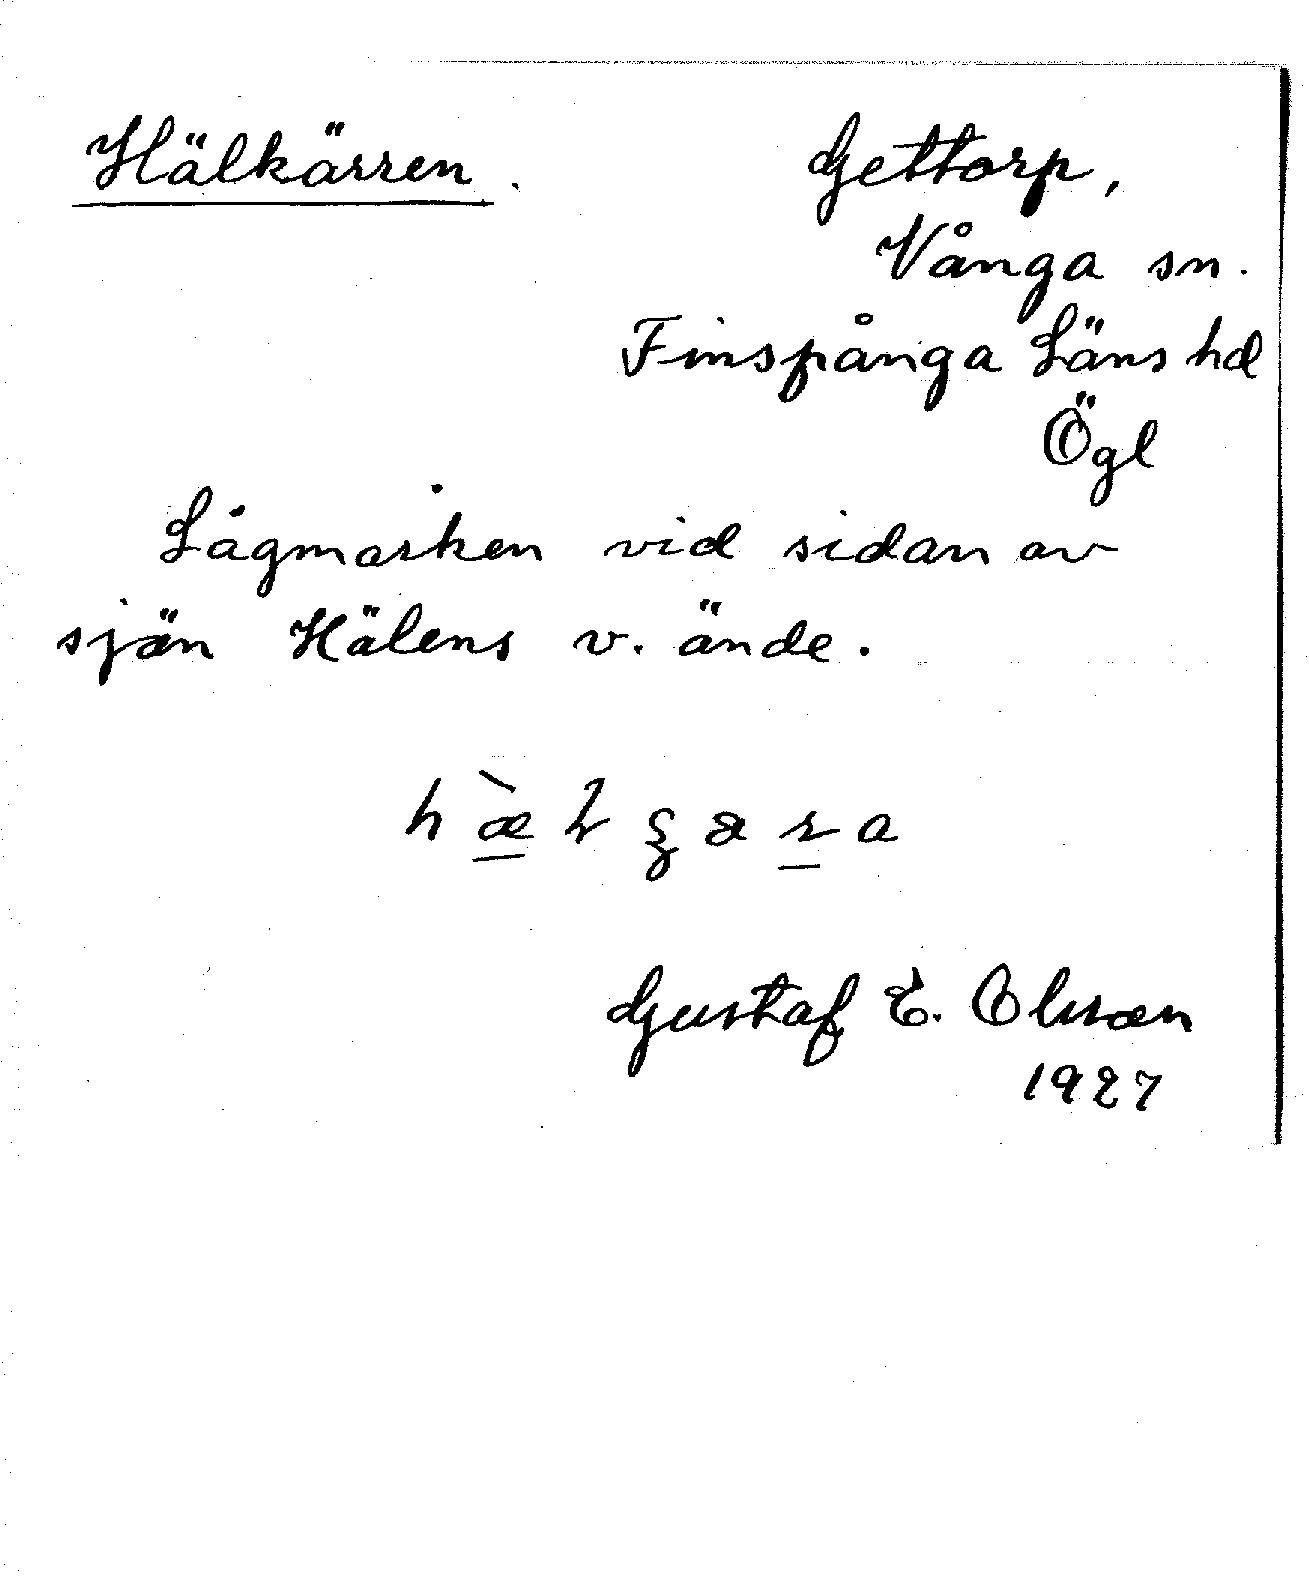 Hälkärren.
Gettorp,
Vånga sn.
Finspånga Läns hd
Ögl
Lågmarken vid sidan av
sjön Hälens v. ände.
Gustaf E. Olsson
1927